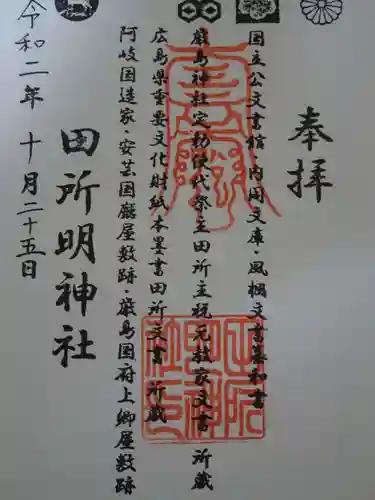 奉拝
国立公文書館・内閣文庫・風櫚文書幕和書
厳島神社定勅使代祭主田所主税元萩家文書所蔵
広島県重要文化財紙本墨書田所文書所蔵
阿岐国造家・安芸国廰屋敷跡・厳島国府上卿屋敷跡
田所明神社
令和二年十月二十五日